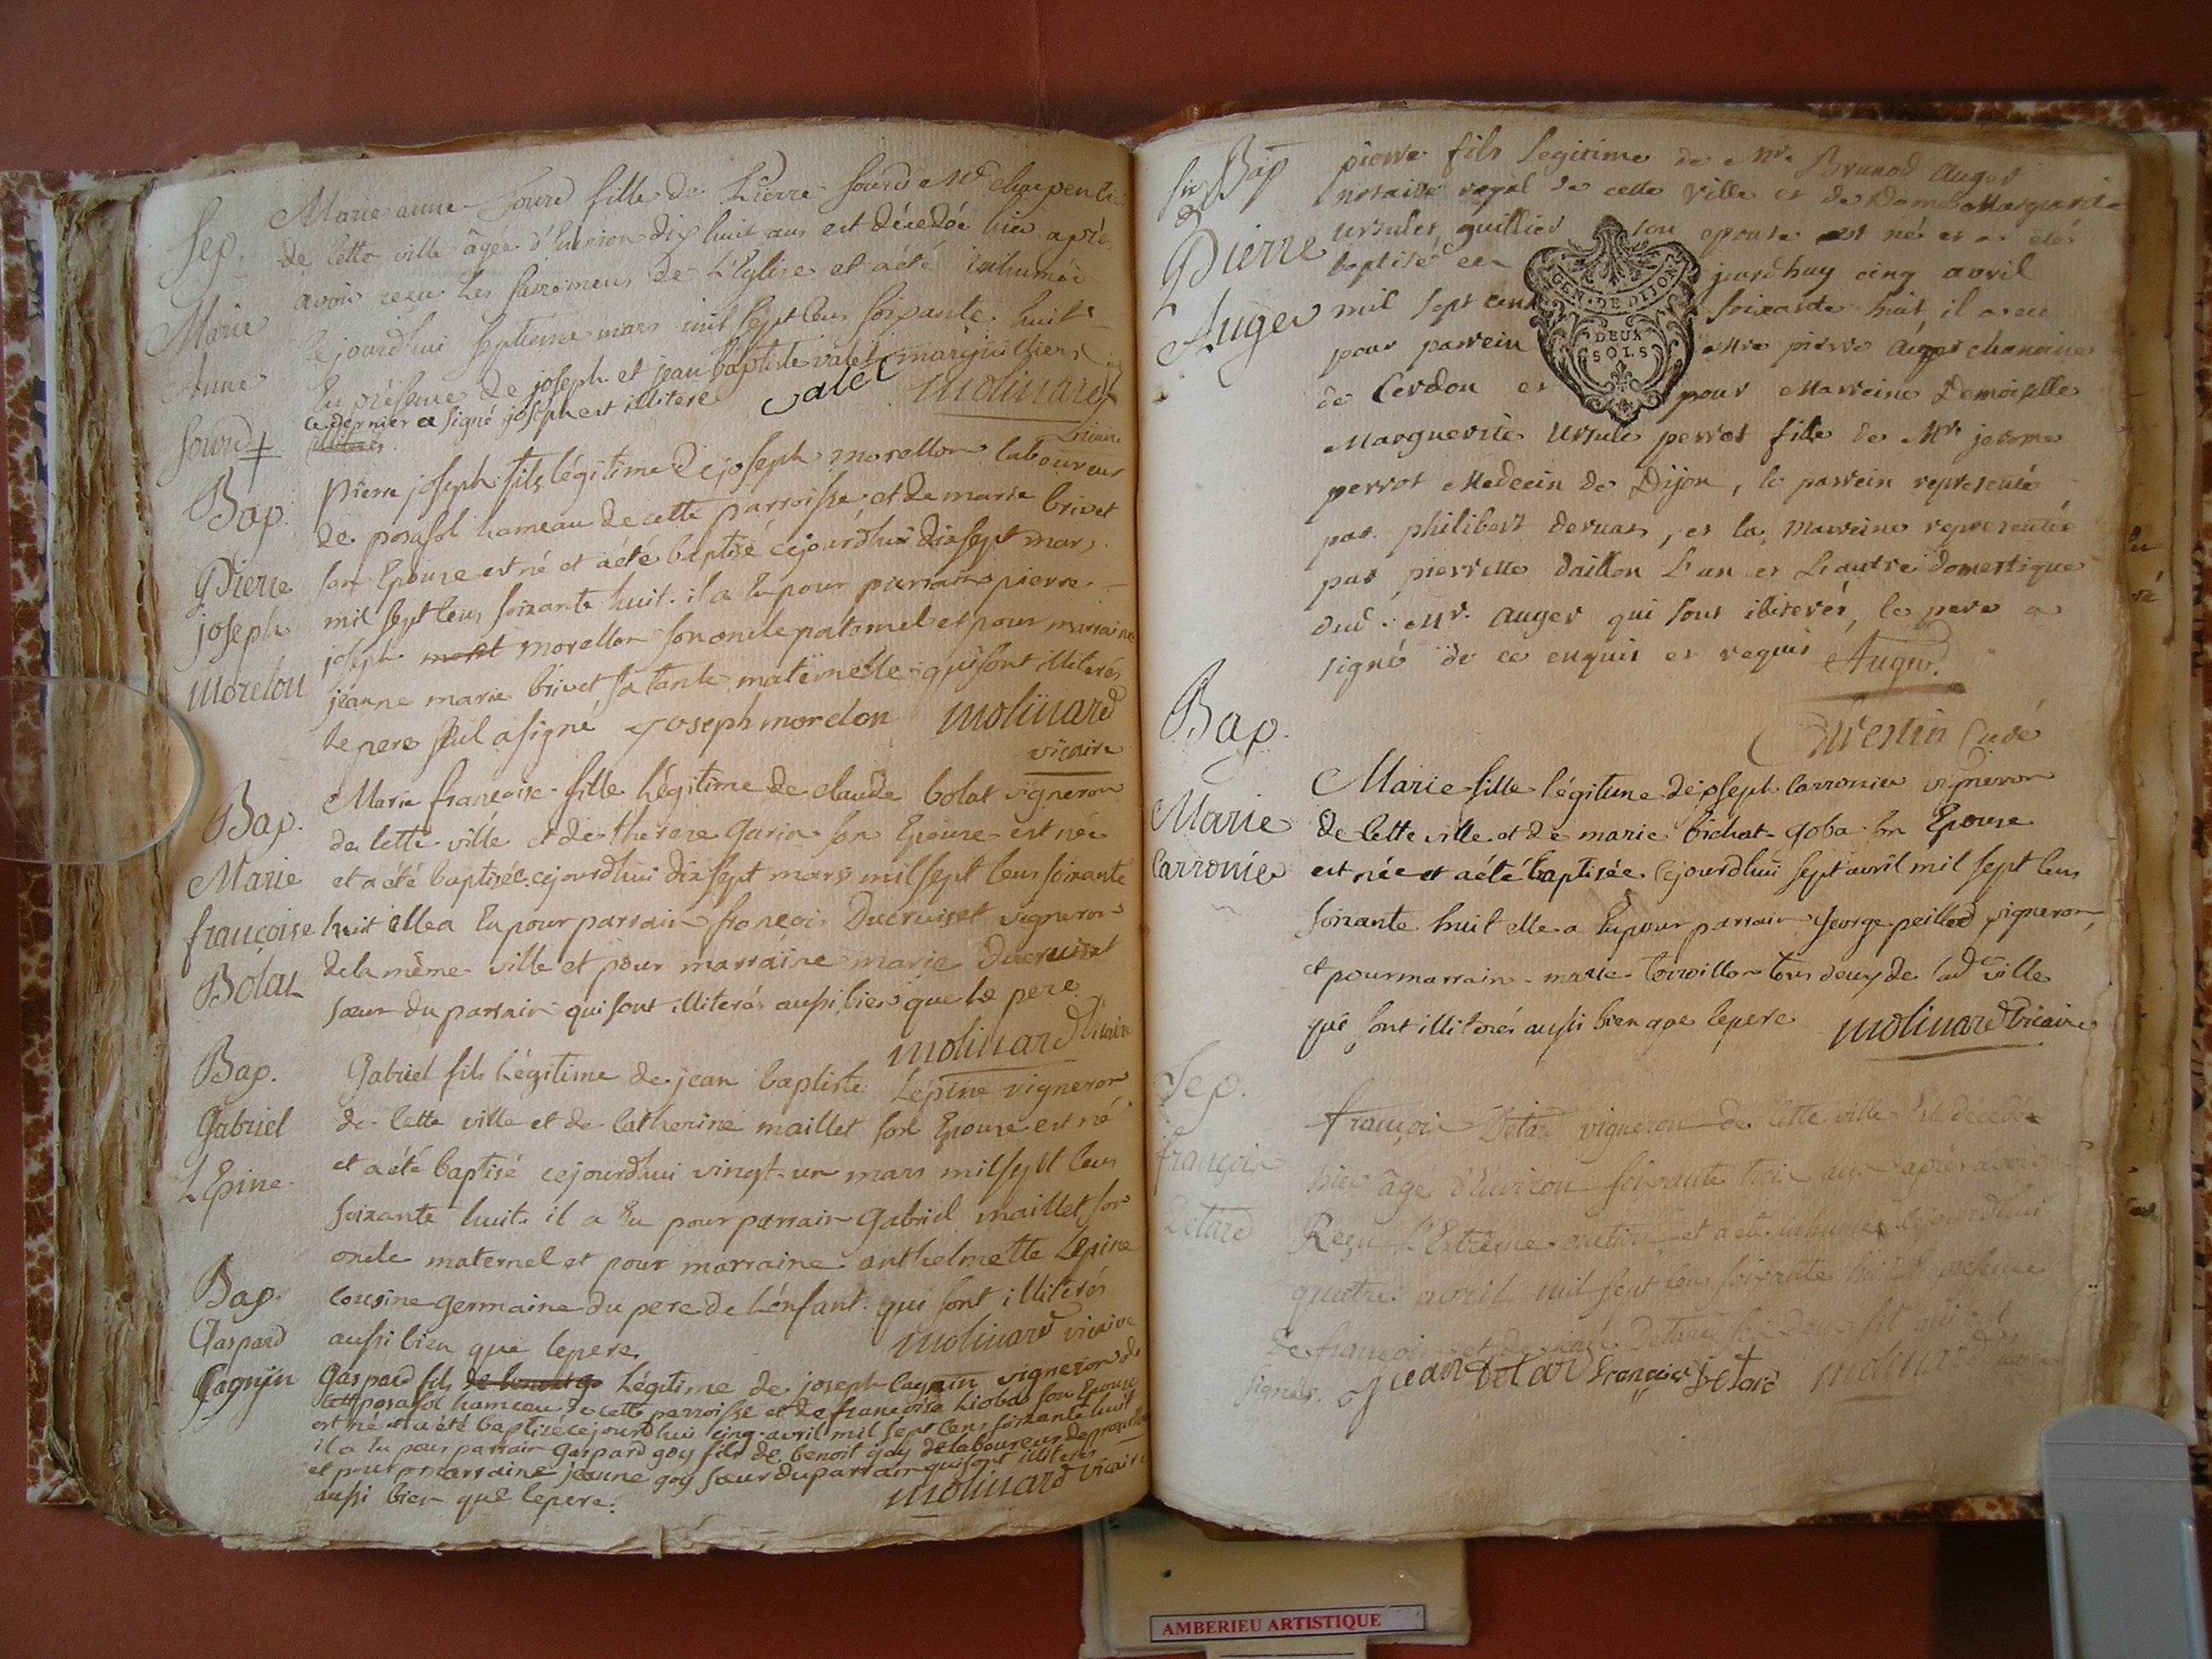 Sep.
Marie
Anne
Sourd +
Marie anne Sourd fille de Pierre Sourd Me charpentier
de Cette ville âgée d'environ dix huit ans est décedée hier après
avoir reçu Les sacremens de L'Eglise et a été inhumée
cejourd'hui septieme mars mil sept Cens soixante huit
En présence de joseph et jean baptiste valet marguilliers
ce dernier a signé joseph est illiteré valet molinard
vicaire
Bap.
Pierre
joseph
morelon
pierre joseph fils légitime de joseph morellon laboureur
de posafol hameau de cette parroisse et de marie brivet
son Epouse est né et a été baptisé cejourd'hui dix sept mars
mil sept Cens soixante huit. il a Eu pour parrain pierre
joseph morellon son oncle paternel et pour marraine
jeanne marie brivet sa tante maternelle qui sont illiterés
le pere seul a signé joseph morelon molinard
vicaire
Bap.
Marie
françoise
Bolat
Marie françoise fille Légitime de claude bolat vigneron
de Cette ville et de therese Garin son Epouse est née
et a été baptisée cejourd'hui dix sept mars mil sept Cens soixante
huit elle a Eu pour parrain françois Ducruiset vigneron
de la même ville et pour marraine marie Ducruiset
sœur du parrain qui sont illiterés aussi bien que le pere
molinard vicaire
Bap.
Gabriel
LEpine
Gabriel fils Légitime de jean baptiste Lépine vigneron
de Cette ville et de Catherine maillet son Epouse est né
et a été baptisé cejourd'hui vingt-un mars mil sept Cens
soixante huit. il a Eu pour parrain Gabriel maillet son
oncle maternel et pour marraine anthelmette Lepine
Cousine germaine du pere de L'enfant. qui sont illiterés
aussi bien que le pere. molinard vicaire
Bap.
Gaspard
Cagnin
Gaspard fils Légitime de joseph Cagnin vigneron de
posafol hameau de cette parroisse et de françoise Liobas son Epouse
est né et a été baptisé cejourd'hui cinq avril mil sept Cens soixante huit
il a Eu pour parrain Gaspard goy fils de benoit goy laboureur de
et pour marraine jeanne goy sœur du parrain qui sont illiterés
aussi bien que le pere. molinard vicaire
Bap
Pierre
Auger
pierre fils legitime de Mr. Brunod Auger
notaire royal de cette Ville et de Dame Marguerite
Ursules guillier son epouse est né et a été
baptisé ce jourd'huy cinq avril
mil sept cent soixante huit il a eu
pour parrein Mre pierre Auger chanoine
de Cerdon et pour Marreine Demoiselle
Marguerite Ursule perrot fille de Mr. jerome
perrot Medecin de Dijon, le parrein representé
par philibert dervas, et la Marreine representée
par pierrette Daillon L'un et L'autre domestique
dud. Mr. Auger qui sont illiterés, le pere a
signé de ce enquis et requis Auger.
GEN. DE DIJON
DEUX
SOLS
Curé
Bap.
Marie
Carronier
Marie fille légitime de joseph Carronier vigneron
de Cette ville et de marie bichat-goba son Epouse
est née et a été baptisée Cejourd'hui sept avril mil sept Cens
soixante huit elle a Eu pour parrain George peillod vigneron,
et pour marraine marie terroillon tous deux de lad. ville
qui sont illiterés aussi bien que le pere molinard vicaire
Sep.
françois
Détard
françois Détard vigneron de Cette ville Est décédé
hier âgé d'environ soixante trois ans après avoir
Reçu L'Extrême onction et a été inhumé cejourd'hui
quatre avril mil sept Cens soixante huit En présence
de françois et de jean Détard
signés. jean Detar françois Detard molinard
AMBERIEU ARTISTIQUE